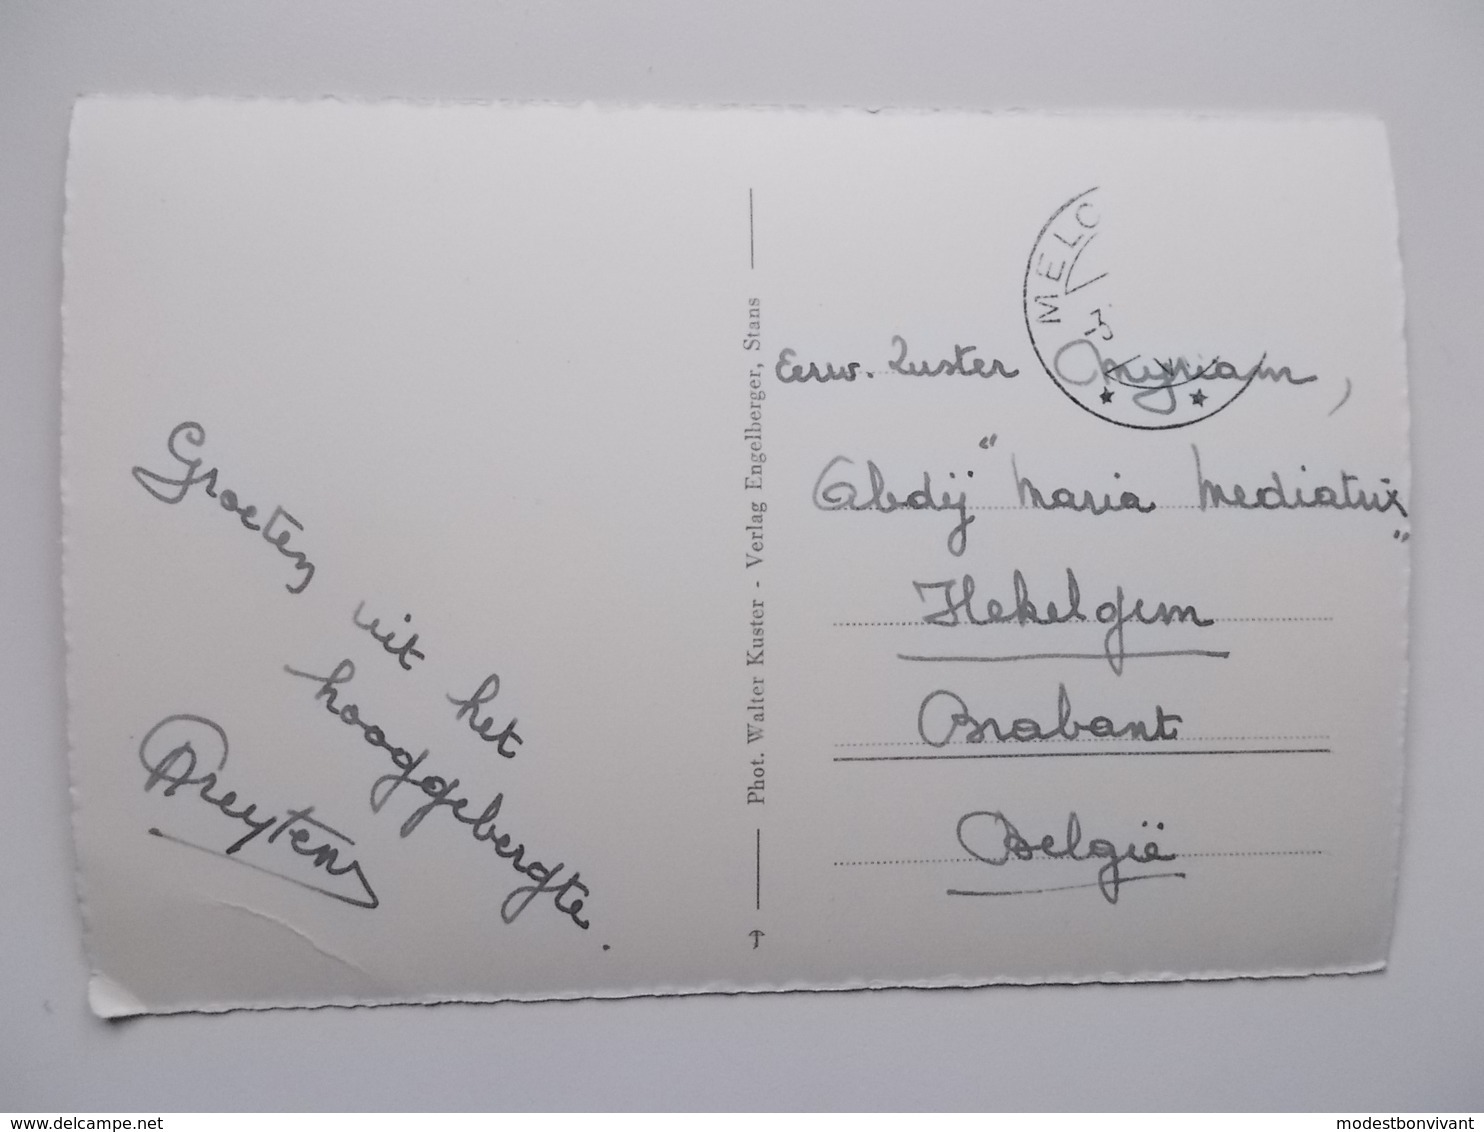 Groeten
uit het
hooggebergte.
Preytens
Phot. Walter Kuster - Verlag Engelberger, Stans
MELC
Eerw. Zuster Myriam,
Abdij "Maria Mediatrix"
Hekelgem
Brabant
België
delcampe.net
modestbonvivant